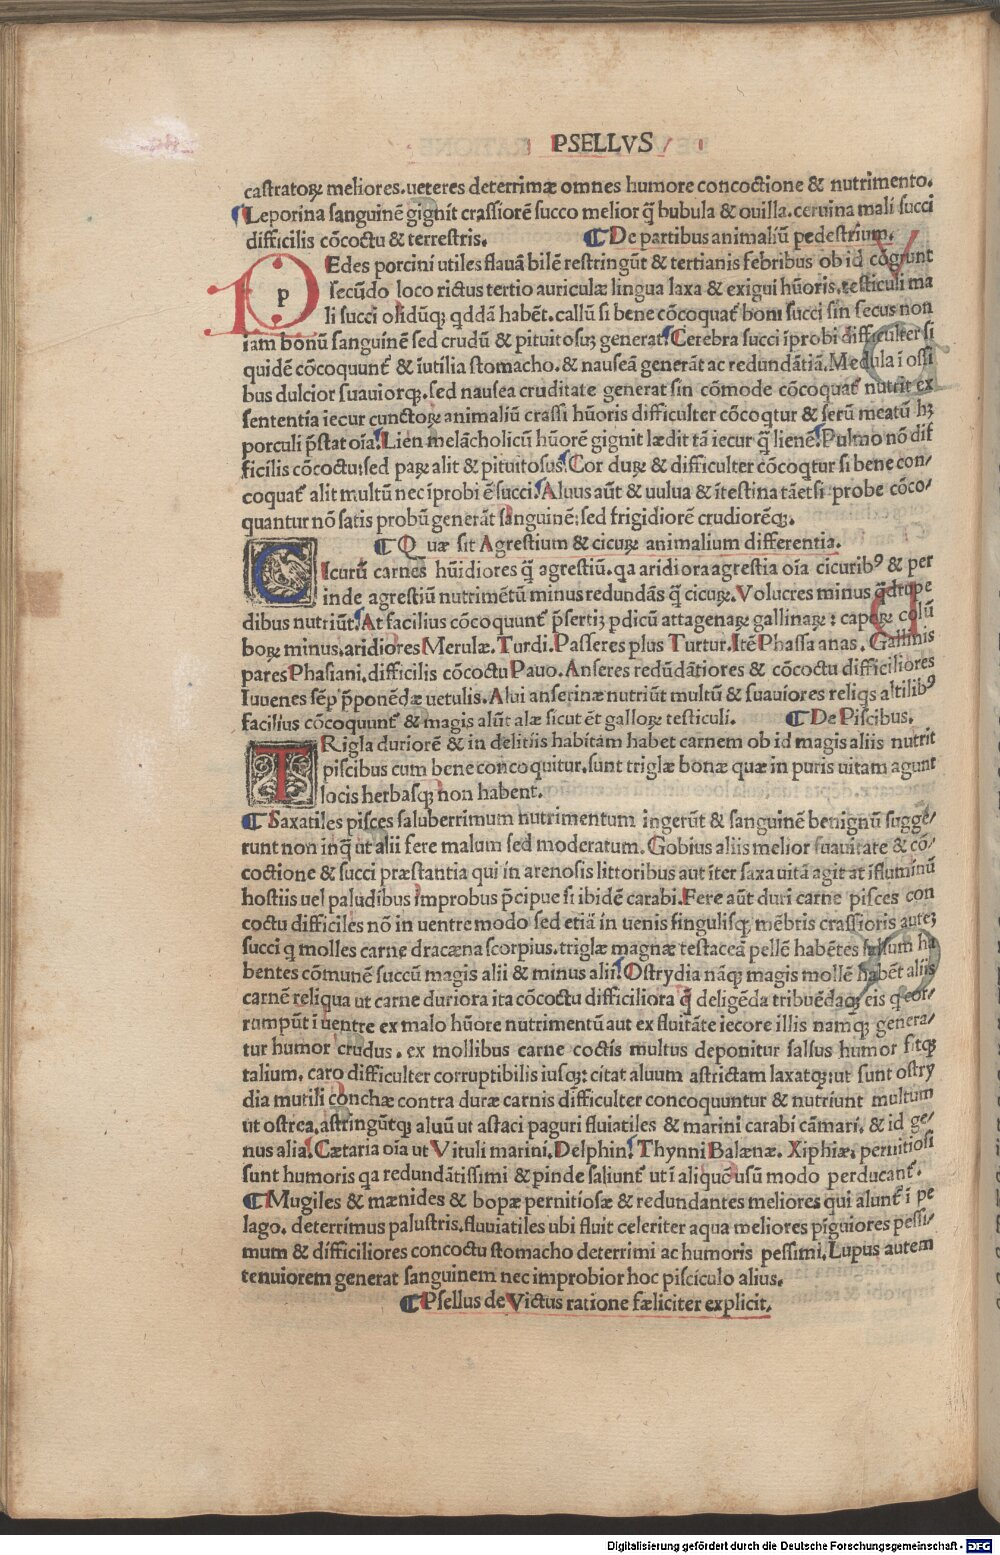 PSELLVS
castratoꝝ meliores.ueteres deterrimæ omnes humore concoctione & nutrimento.
¶Leporina sanguinē gignit crassiorē succo melior q̄ bubula & ouilla.ceruina mali succi
difficilis cōcoctu & terrestris. ¶De partibus animaliū pedestrium.
PEdes porcini utiles flauā bilē restringūt & tertianis febribus ob id cōgrunt
secūdo loco rictus tertio auriculæ lingua laxa & exigui hūoris.testiculi ma
li succi olidūqꝫ qddā habēt.callū si bene cōcoquat̄ boni succi sin secus non
iam bonū sanguinē sed crudū & pituitosuꝫ generat.Cerebra succi īprobi difficulter si
quidē cōcoquunt̄ & īutilia stomacho.& nauseā generāt ac redundātiā.Medula ī ossi
bus dulcior suauiorqꝫ.sed nausea cruditate generat sin cōmode cōcoquat̄ nutrit ex
sententia iecur cunctoꝝ animaliū crassi hūoris difficulter cōcoqtur & serū meatū hꝫ
porculi p̄stat oīa.Lien melācholicū hūorē gignit lædit tā iecur q̄ lienē.Pulmo nō dif
ficilis cōcoctu:sed paꝝ alit & pituitosus.Cor duꝝ & difficulter cōcoqtur si bene con/
coquat̄ alit multū nec īprobi ē succi.Aluus aūt & uulua & ītestina tāetsi probe cōco/
quantur nō satis probū generāt sanguinē:sed frigidiorē crudiorēqꝫ.
¶Quæ sit Agrestium & cicuꝝ animalium differentia.
CIcurū carnes hūidiores q̄ agrestiū.qa aridiora agrestia oīa cicuribꝰ & per
inde agrestiū nutrimētū minus redundās q̄ cicuꝝ.Volucres minus q̄drupe
dibus nutriūt.At facilius cōcoquunt̄ p̄sertiꝫ pdicū attagenaꝝ gallinaꝝ: capoꝝ colū
boꝝ minus.aridiores Merulæ.Turdi.Passeres plus Turtur.Itē Phassa anas. Gallinis
pares Phasiani.difficilis cōcoctu Pauo.Anseres redūdātiores & cōcoctu difficiliores
Iuuenes sēp p̄ponēdæ uetulis.Alui anserinæ nutriūt multū & suauiores reliqs altilibꝰ
facilius cōcoquunt̄ & magis alūt alæ sicut ēt galloꝝ testiculi. ¶De Piscibus.
TRigla duriorē & in delitiis habitam habet carnem ob id magis aliis nutrit
piscibus cum bene concoquitur.sunt triglæ bonæ quæ in puris uitam agunt
locis herbasqꝫ non habent.
¶Saxatiles pisces saluberrimum nutrimentum ingerūt & sanguinē benignū suggē/
runt non inq̄ ut alii fere malum sed moderatum. Gobius aliis melior suauitate & cō/
coctione & succi præstantia qui in arenosis littoribus aut īter saxa uitā agit at īfluminū
hostiis uel paludibus improbus p̄cipue si ibidē carabi.Fere aūt duri carne pisces con
coctu difficiles nō in uentre modo sed etiā in uenis singulisqꝫ mēbris crassioris auteꝫ
succi q molles carne dracæna scorpius.triglæ magnæ testaceā pellē habētes salsum ha
bentes cōmunē succū magis alii & minus alii.Ostrydia nāqꝫ magis mollē habēt aliis
carnē reliqua ut carne duriora ita cōcoctu difficiliora q̄ deligēda tribuēdaqꝫ eis q cor/
rumpūt ī uentre ex malo hūore nutrimentū aut ex fluitāte iecore illis namqꝫ genera/
tur humor crudus. ex mollibus carne coctis multus deponitur salsus humor fitqꝫ
talium. caro difficulter corruptibilis iusqꝫ: citat aluum astrictam laxatqꝫ:ut sunt ostry
dia mutili conchæ contra duræ carnis difficulter concoquuntur & nutriunt multum
ut ostrea.astringūtqꝫ aluū ut astaci paguri fluiatiles & marini carabi cāmari. & id ge/
nus alia.Cætaria oīa ut Vituli marini.Delphin.Thynni Balænæ. Xiphiæ. pernitiosi
sunt humoris qa redundātissimi & pinde saliunt̄ ut ī aliquē usū modo perducant̄.
¶Mugiles & mænides & bopæ pernitiosæ & redundantes meliores qui alunt̄ ī pe
lago. deterrimus palustris.fluuiatiles ubi fluit celeriter aqua meliores pīguiores pessi/
mum & difficiliores concoctu stomacho deterrimi ac humoris pessimi.Lupus autem
tenuiorem generat sanguinem nec improbior hoc pisciculo alius.
¶Psellus de Victus ratione fæliciter explicit.
Digitalisierung gefördert durch die Deutsche Forschungsgemeinschaft - DFG